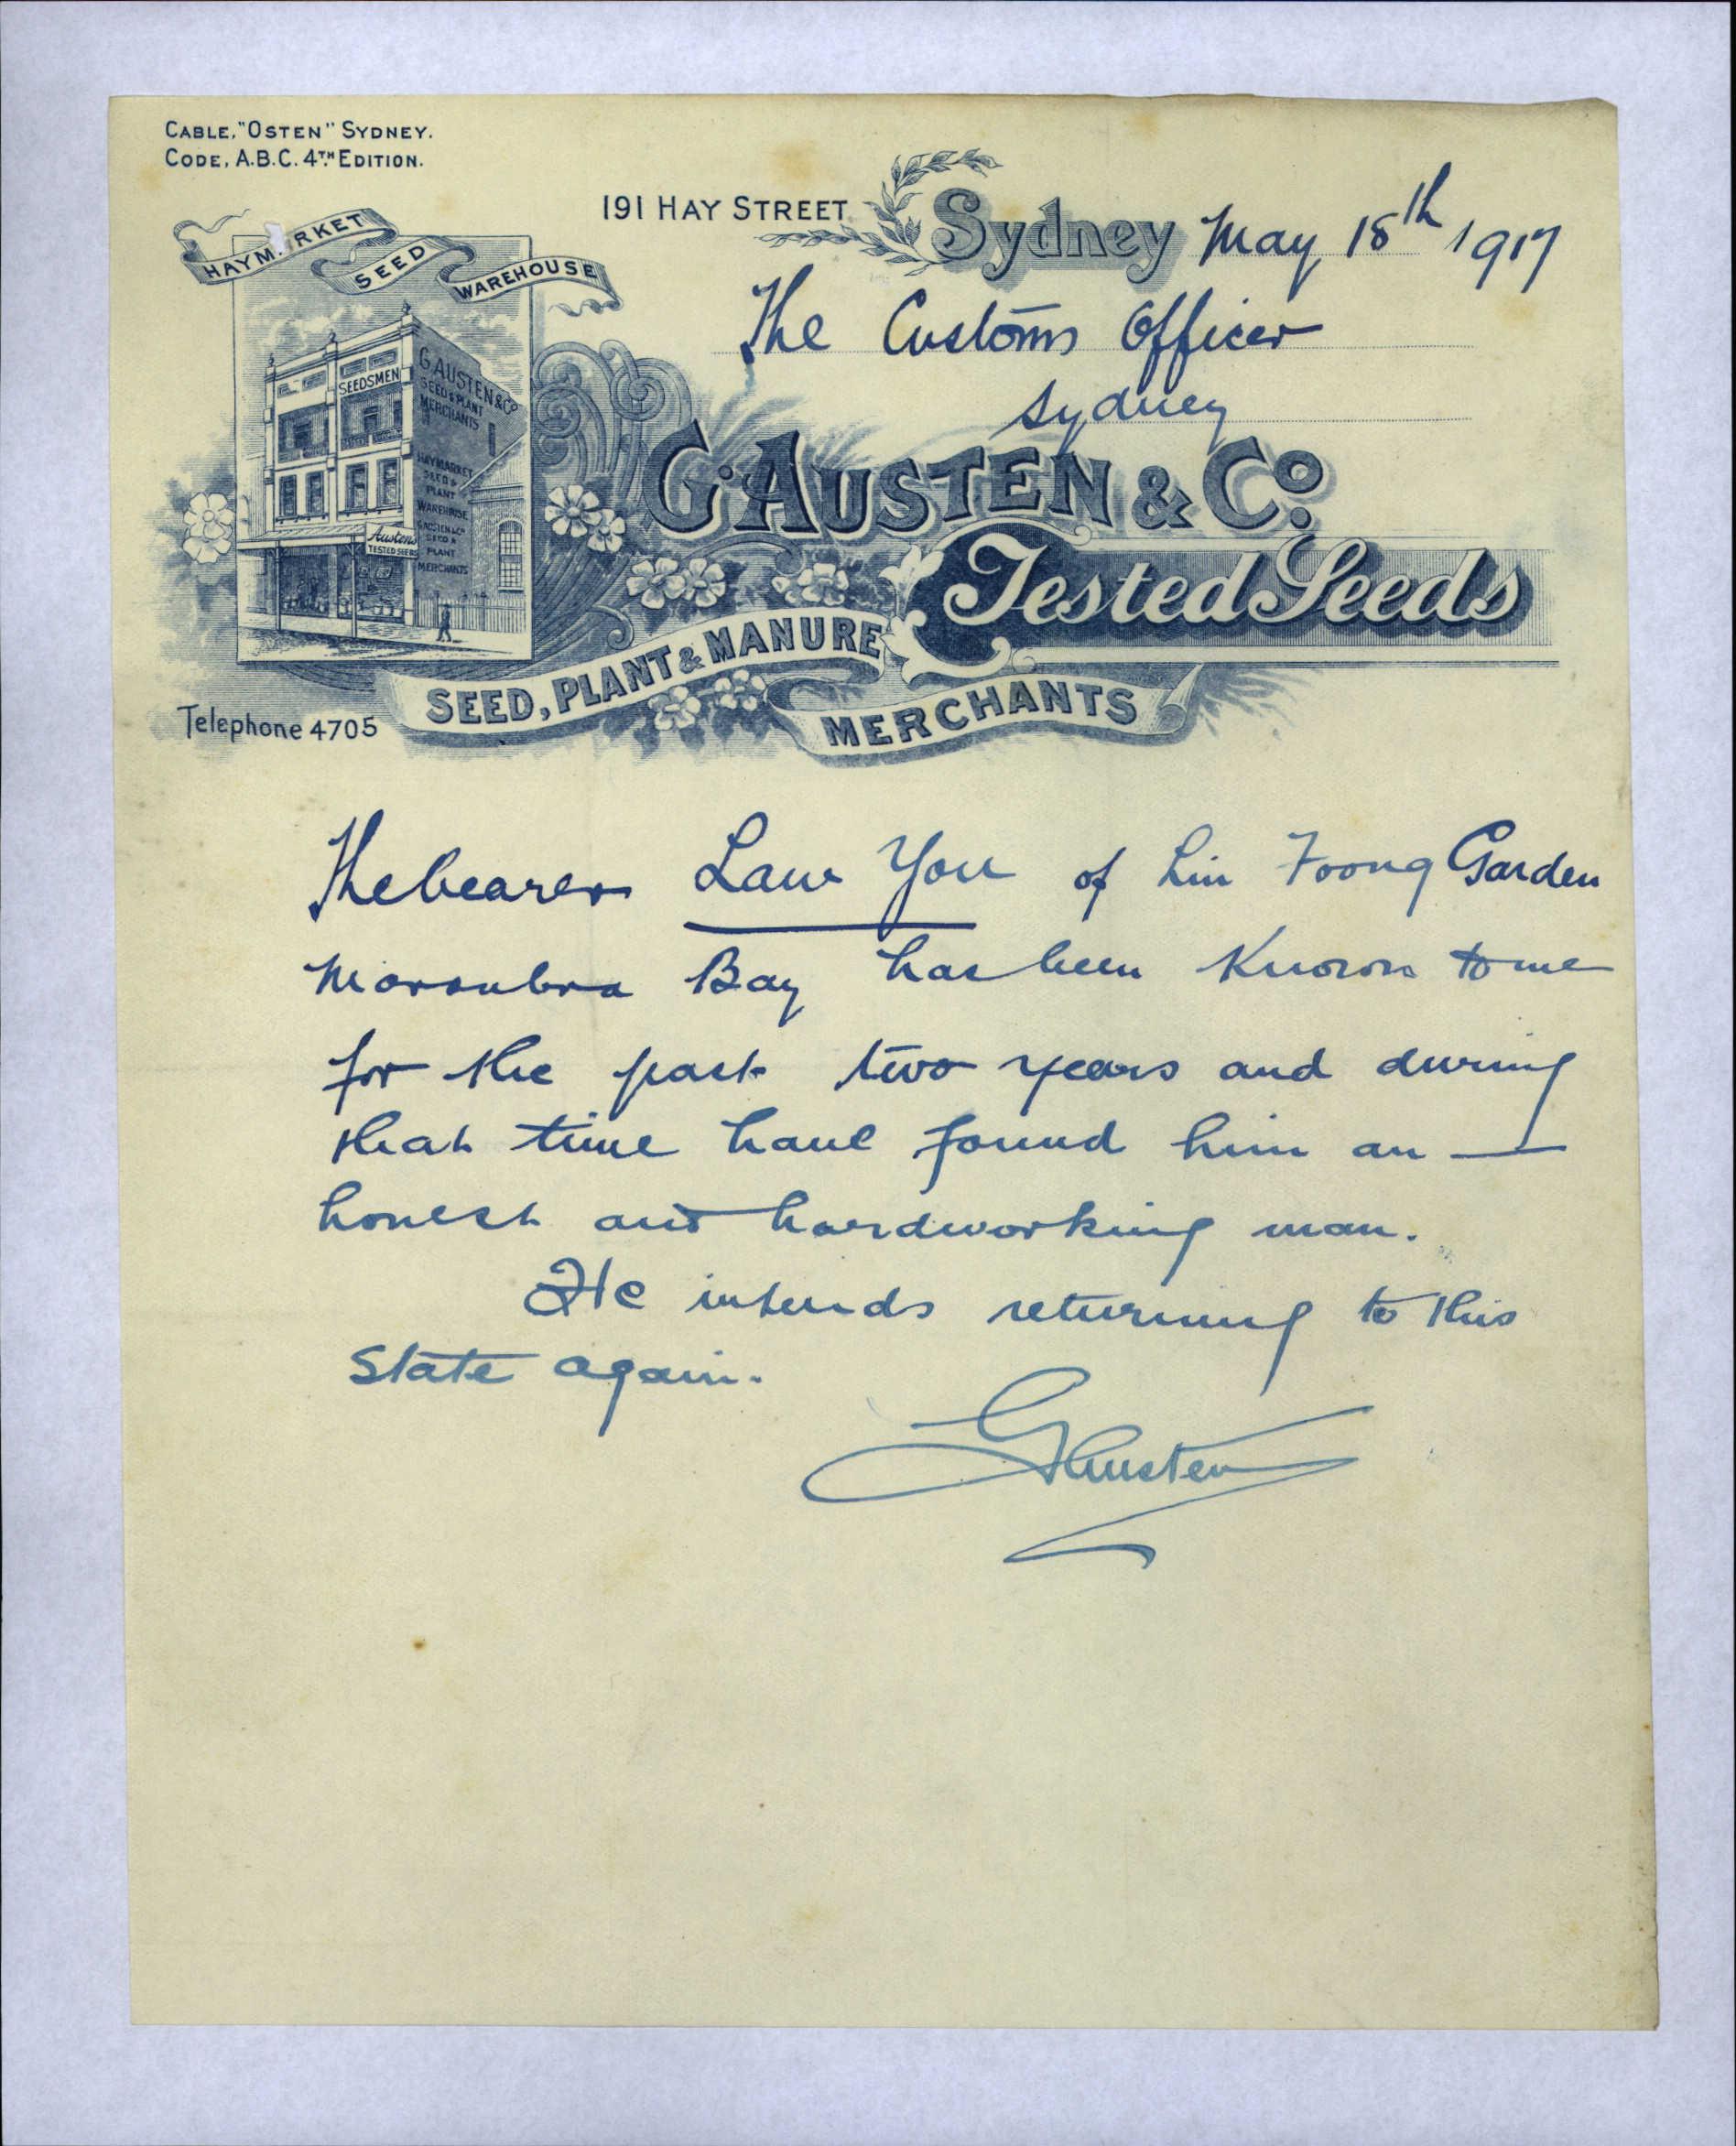 CABLE, "OSTEN" SYDNEY.
CODE, A.B.C. 4TH EDITION.
191 HAY STREET
Sydney May 18th 1917
HAYM RKET SEED WAREHOUSE
The Customs Officer
Sydney
SEEDSMEN
G. AUSTEN & Co
SEED & PLANT
MERCHANTS
HAYMARKET
SEED &
PLANT
WAREHOUSE
G. AUSTEN & Co
SEED &
PLANT
MERCHANTS
Austens
TESTED SEEDS
G. AUSTEN & Co.
Tested Seeds
SEED, PLANT & MANURE
MERCHANTS
Telephone 4705
The bearer Law You of Lin Foong Garden
Maroubra Bay has been Known to me
for the past two years and during
that time have found him an
honest and hardworking man.
He intends returning to this
State again.
G Austen